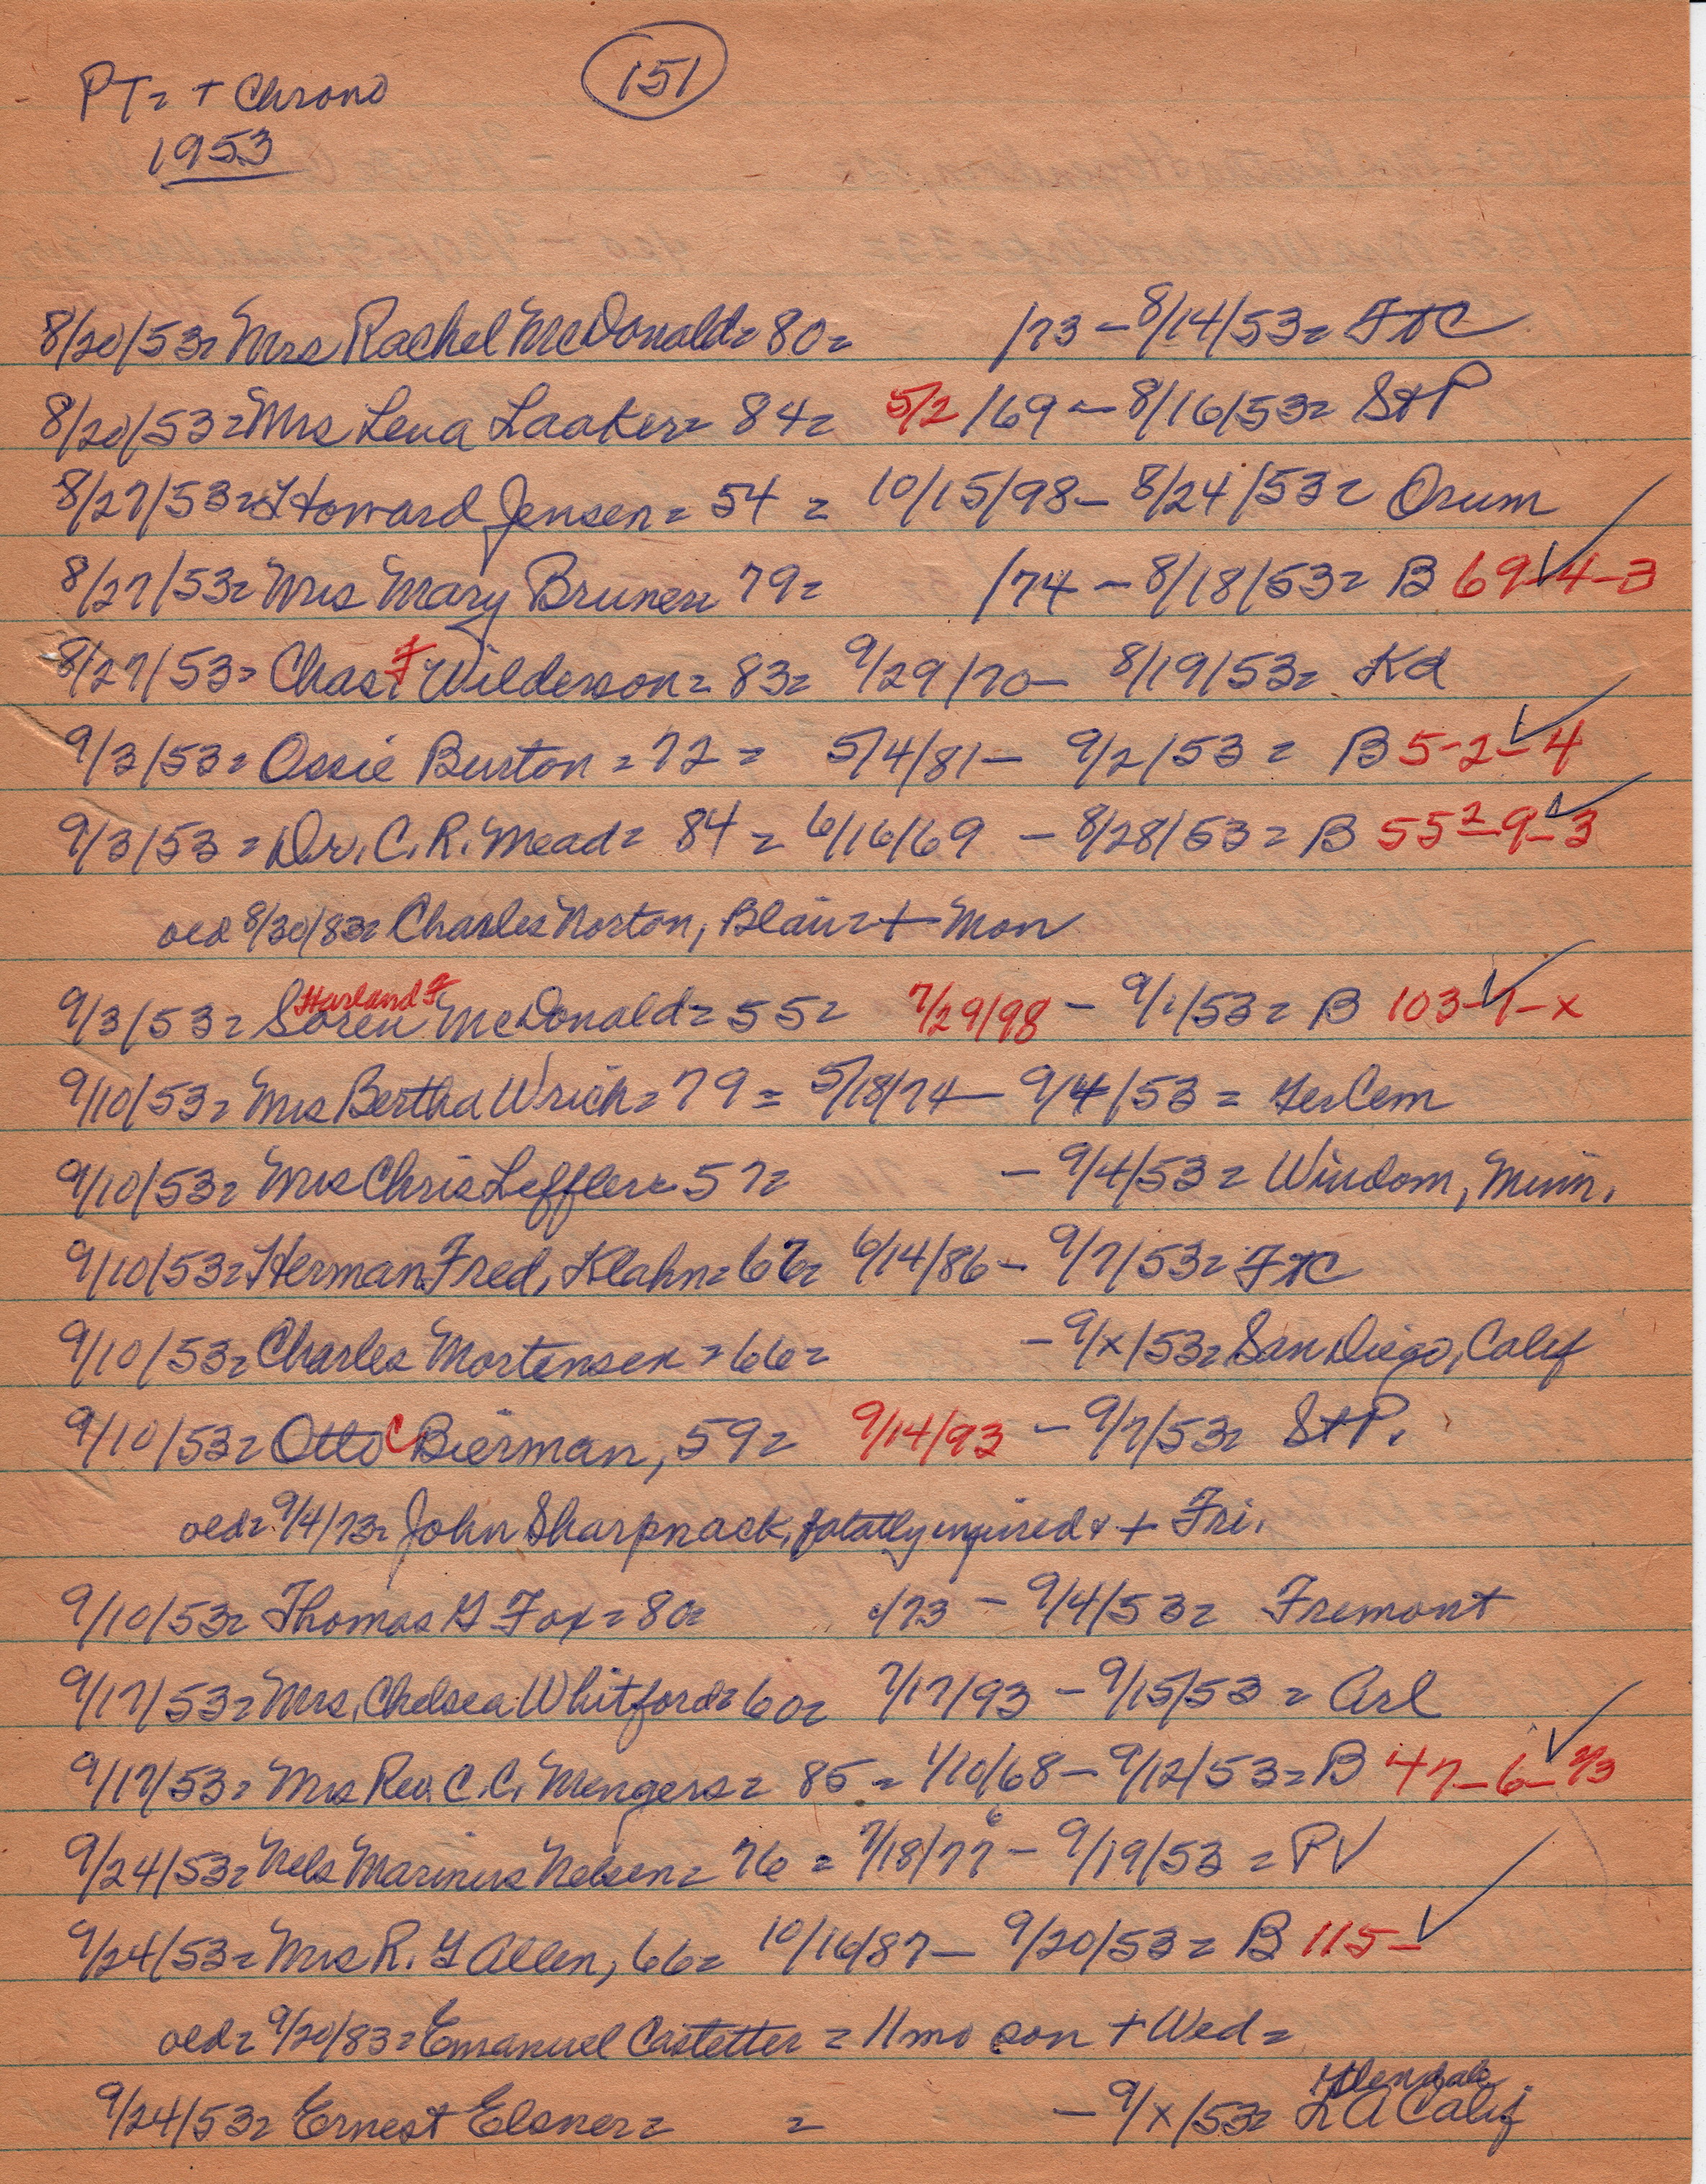 151
PT= + Chrono
1953
8/20/53= Mrs Rachel McDonald= 80= /73 – 8/14/53= FtC
8/20/53= Mrs Lena Laaker= 84= 5/2/69 – 8/16/53= StP
8/27/53= Howard Jensen= 54 = 10/15/98– 8/24/53= Orum
8/27/53= Mrs Mary Bruner= 79= /74 – 8/18/53= B 69-4-3
8/27/53= Chas F Wilderson= 83= 9/29/70– 8/19/53= Kd
9/3/53= Ossie Burton = 72 = 5/4/81– 9/2/53 = B 5-2-4
9/3/53 = Dr. C. R. Mead= 84 = 6/16/69 – 8/28/53= B 55²-9-3
oed 8/30/83= Charles Norton, Blair= + Mon
Harland F
9/3/53= Soren McDonald= 55= 7/29/98 – 9/1/53= B 103-1-x
9/10/53= Mrs Bertha Wrich= 79 = 5/18/74– 9/4/53 = GerCem
9/10/53= Mrs Chris Leffler= 57= – 9/4/53= Windom, Minn.
9/10/53= Herman Fred, Klahn= 67= 6/14/86– 9/7/53= FtC
9/10/53= Charles Mortensen = 66= – 9/x/53= San Diego, Calif
9/10/53= Otto C Bierman, 59= 9/14/93 – 9/7/53= StP.
oed= 9/4/73= John Sharpnack, fatally injured & + Fri.
9/10/53= Thomas G Fox= 80= /73 – 9/4/53= Fremont
9/17/53= Mrs. Chelsea Whitford= 60= 7/17/93 – 9/15/53 = Arl
9/17/53= Mrs Rev. C. C. Mengers= 85 = 1/10/68– 9/12/53= B 47-6-2/3
9/24/53= Nels Marinus Nelsen= 76 = 7/18/77 6 – 9/19/53 = PV
9/24/53= Mrs R. G Allen, 66= 10/16/87– 9/20/53= B 115-
oed= 9/20/83= Emanuel Castetter = 11 mo son + Wed=
Glendale
9/24/53= Ernest Elsner= = – 9/x/53= LA Calif